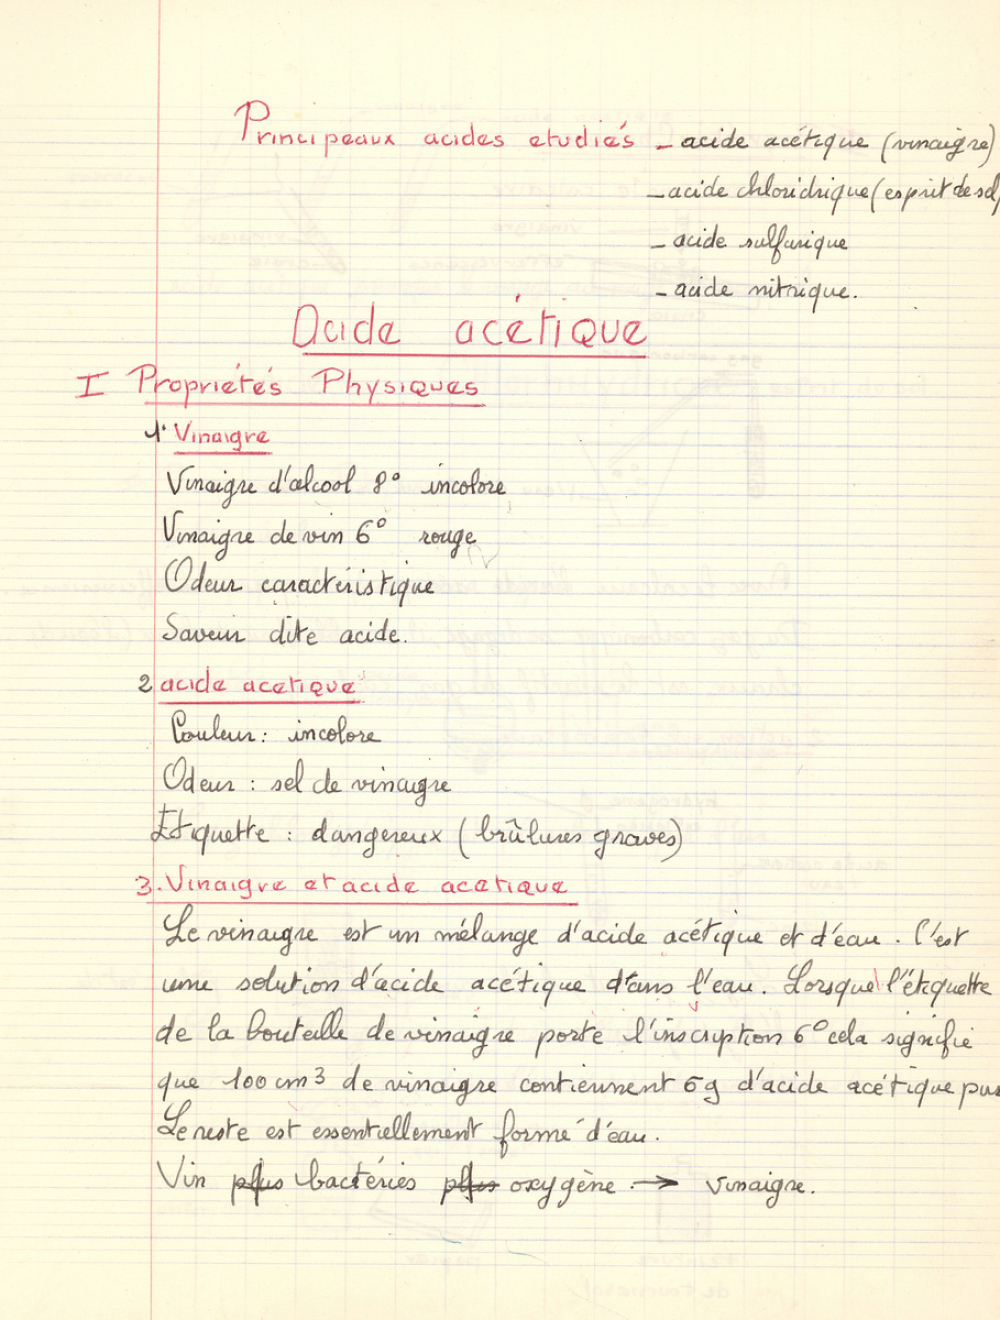 Principeaux acides etudiés - acide acétique (vinaigre)
- acide chloridrique (esprit de sel)
- acide sulfurique
- acide nitrique.
Acide acétique
I Propriétés Physiques
1° Vinaigre
Vinaigre d'alcool 8° incolore
Vinaigre de vin 6° rouge
Odeur caractéristique
Saveur dite acide.
2 acide acetique
Couleur : incolore
Odeur : sel de vinaigre
Etiquette : dangereux (brûlures graves)
3. Vinaigre et acide acetique
Le vinaigre est un mélange d'acide acétique et d'eau. C'est
une solution d'acide acétique dans l'eau. Lorsque l'étiquette
de la bouteille de vinaigre porte l'inscription 6° cela signifie
que 100 cm3 de vinaigre contiennent 6g d'acide acétique pur
Le reste est essentiellement formé d'eau.
Vin plus bactéries plus oxygène → vinaigre.